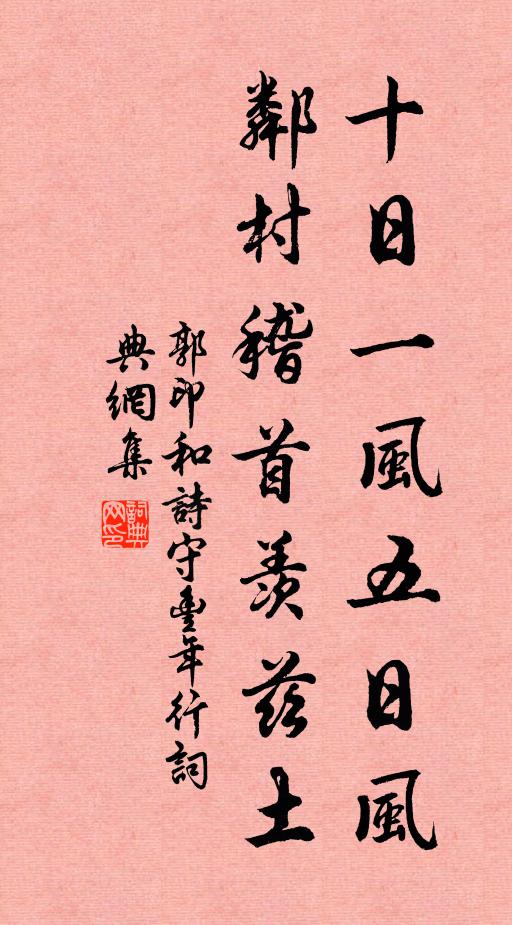 十日一風五日風
鄰村稽首羨茲土
郭印和詩守豐年行詞
典網集
詞典網印